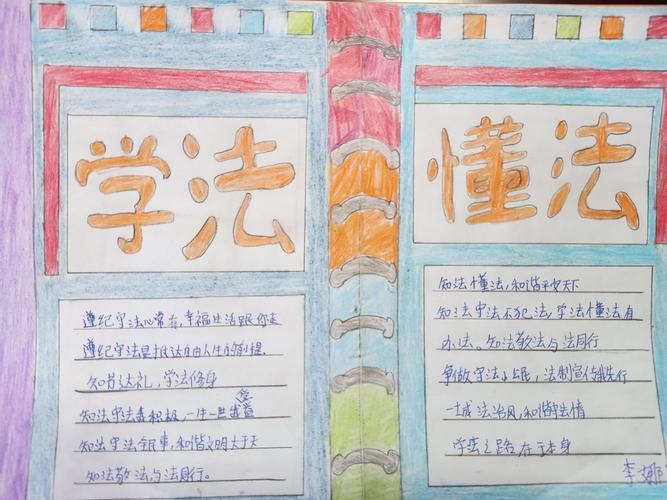 学法
遵纪守法心常存，幸福生活跟你走
遵纪守法是抵达自由人生的前提.
知书达礼，学法修身
知法守法最积极，一生一世
知法守法全民事，和谐文明大于天
知法敬法，与法同行。
懂法
知法懂法，和谐平安天下
知法守法不犯法，学法懂法有
办法。知法敬法与法同行
争做守法小公民，法制宣传我先行
一城法治风，和谐情
学法之路在于本身
李娜